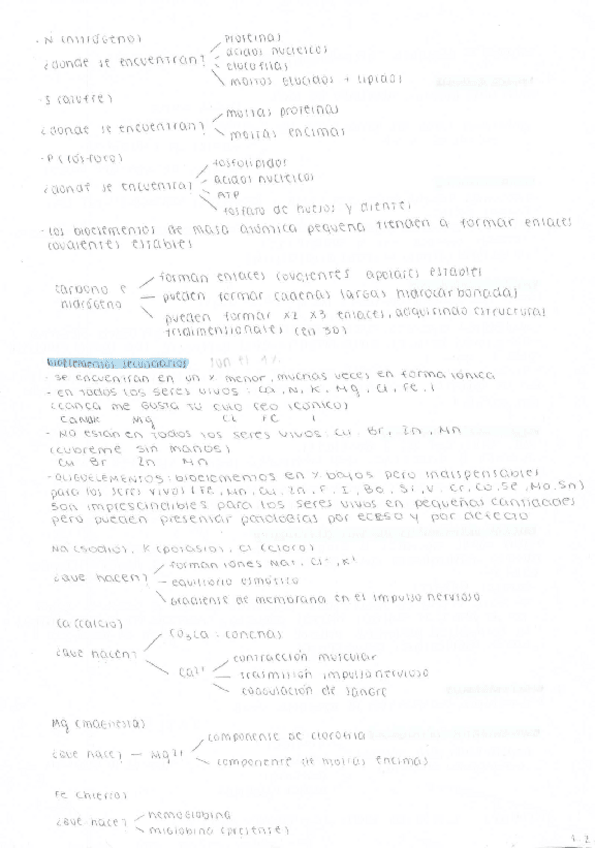 - N (nitrógeno)
¿donde se encuentran?
proteinas
ácidos nucleicos
clorofilas
moitos glucidos + lipidos
- S (azufre)
¿donde se encuentran?
moitas proteínas
moitas encimas
- P (fósforo)
¿donde se encuentra?
fosfolípidos
ácidos nucleicos
ATP
fosfaro de huesos y dientes
- los bioelementos de masa atómica pequeña tienden a formar enlaces
covalentes estables
carbono e
hidrógeno
forman enlaces covalentes apolares estables
pueden formar cadenas largas hidrocarbonadas
pueden formar x2 x3 enlaces, adquirindo estructuras
tridimensionales (en 3D)
bioelementos secundarios
- se encuentran en un % menor, muchas veces en forma iónica
- en todos los seres vivos: Ca, N, K, Mg, Cl, Fe, I
(canca me gusta tu culo feo icónico)
CaNaK Mg Cl Fe I
- No están en todos los seres vivos: Cu, Br, Zn, Mn
(cubreme sin manos)
Cu Br Zn Mn
- OLIGOELEMENTOS: bioelementos en % bajos pero indispensables
para los seres vivos (Fe, Mn, Cu, Zn, F, I, Bo, Si, V, Cr, Co, Se, Mo, Sn)
son imprescindibles para los seres vivos en pequeñas cantidades
pero pueden presentar patologías por eceso y por defecto
Na (sodio), K (potasio), Cl (cloro)
¿que hacen?
forman iones Na+, Cl-, K+
equilibrio osmótico
gradiente de membrana en el impulso nervioso
Ca (calcio)
¿que hacen?
CO3Ca: conchas
Ca2+
contracción muscular
trasmisión impulso nervioso
coagulación de sangre
Mg (magnesia)
¿que hace? — Mg2+
componente de clorofila
componente de moitas encimas
Fe (hierro)
¿que hace?
hemoglobina
mioglobina (presente)